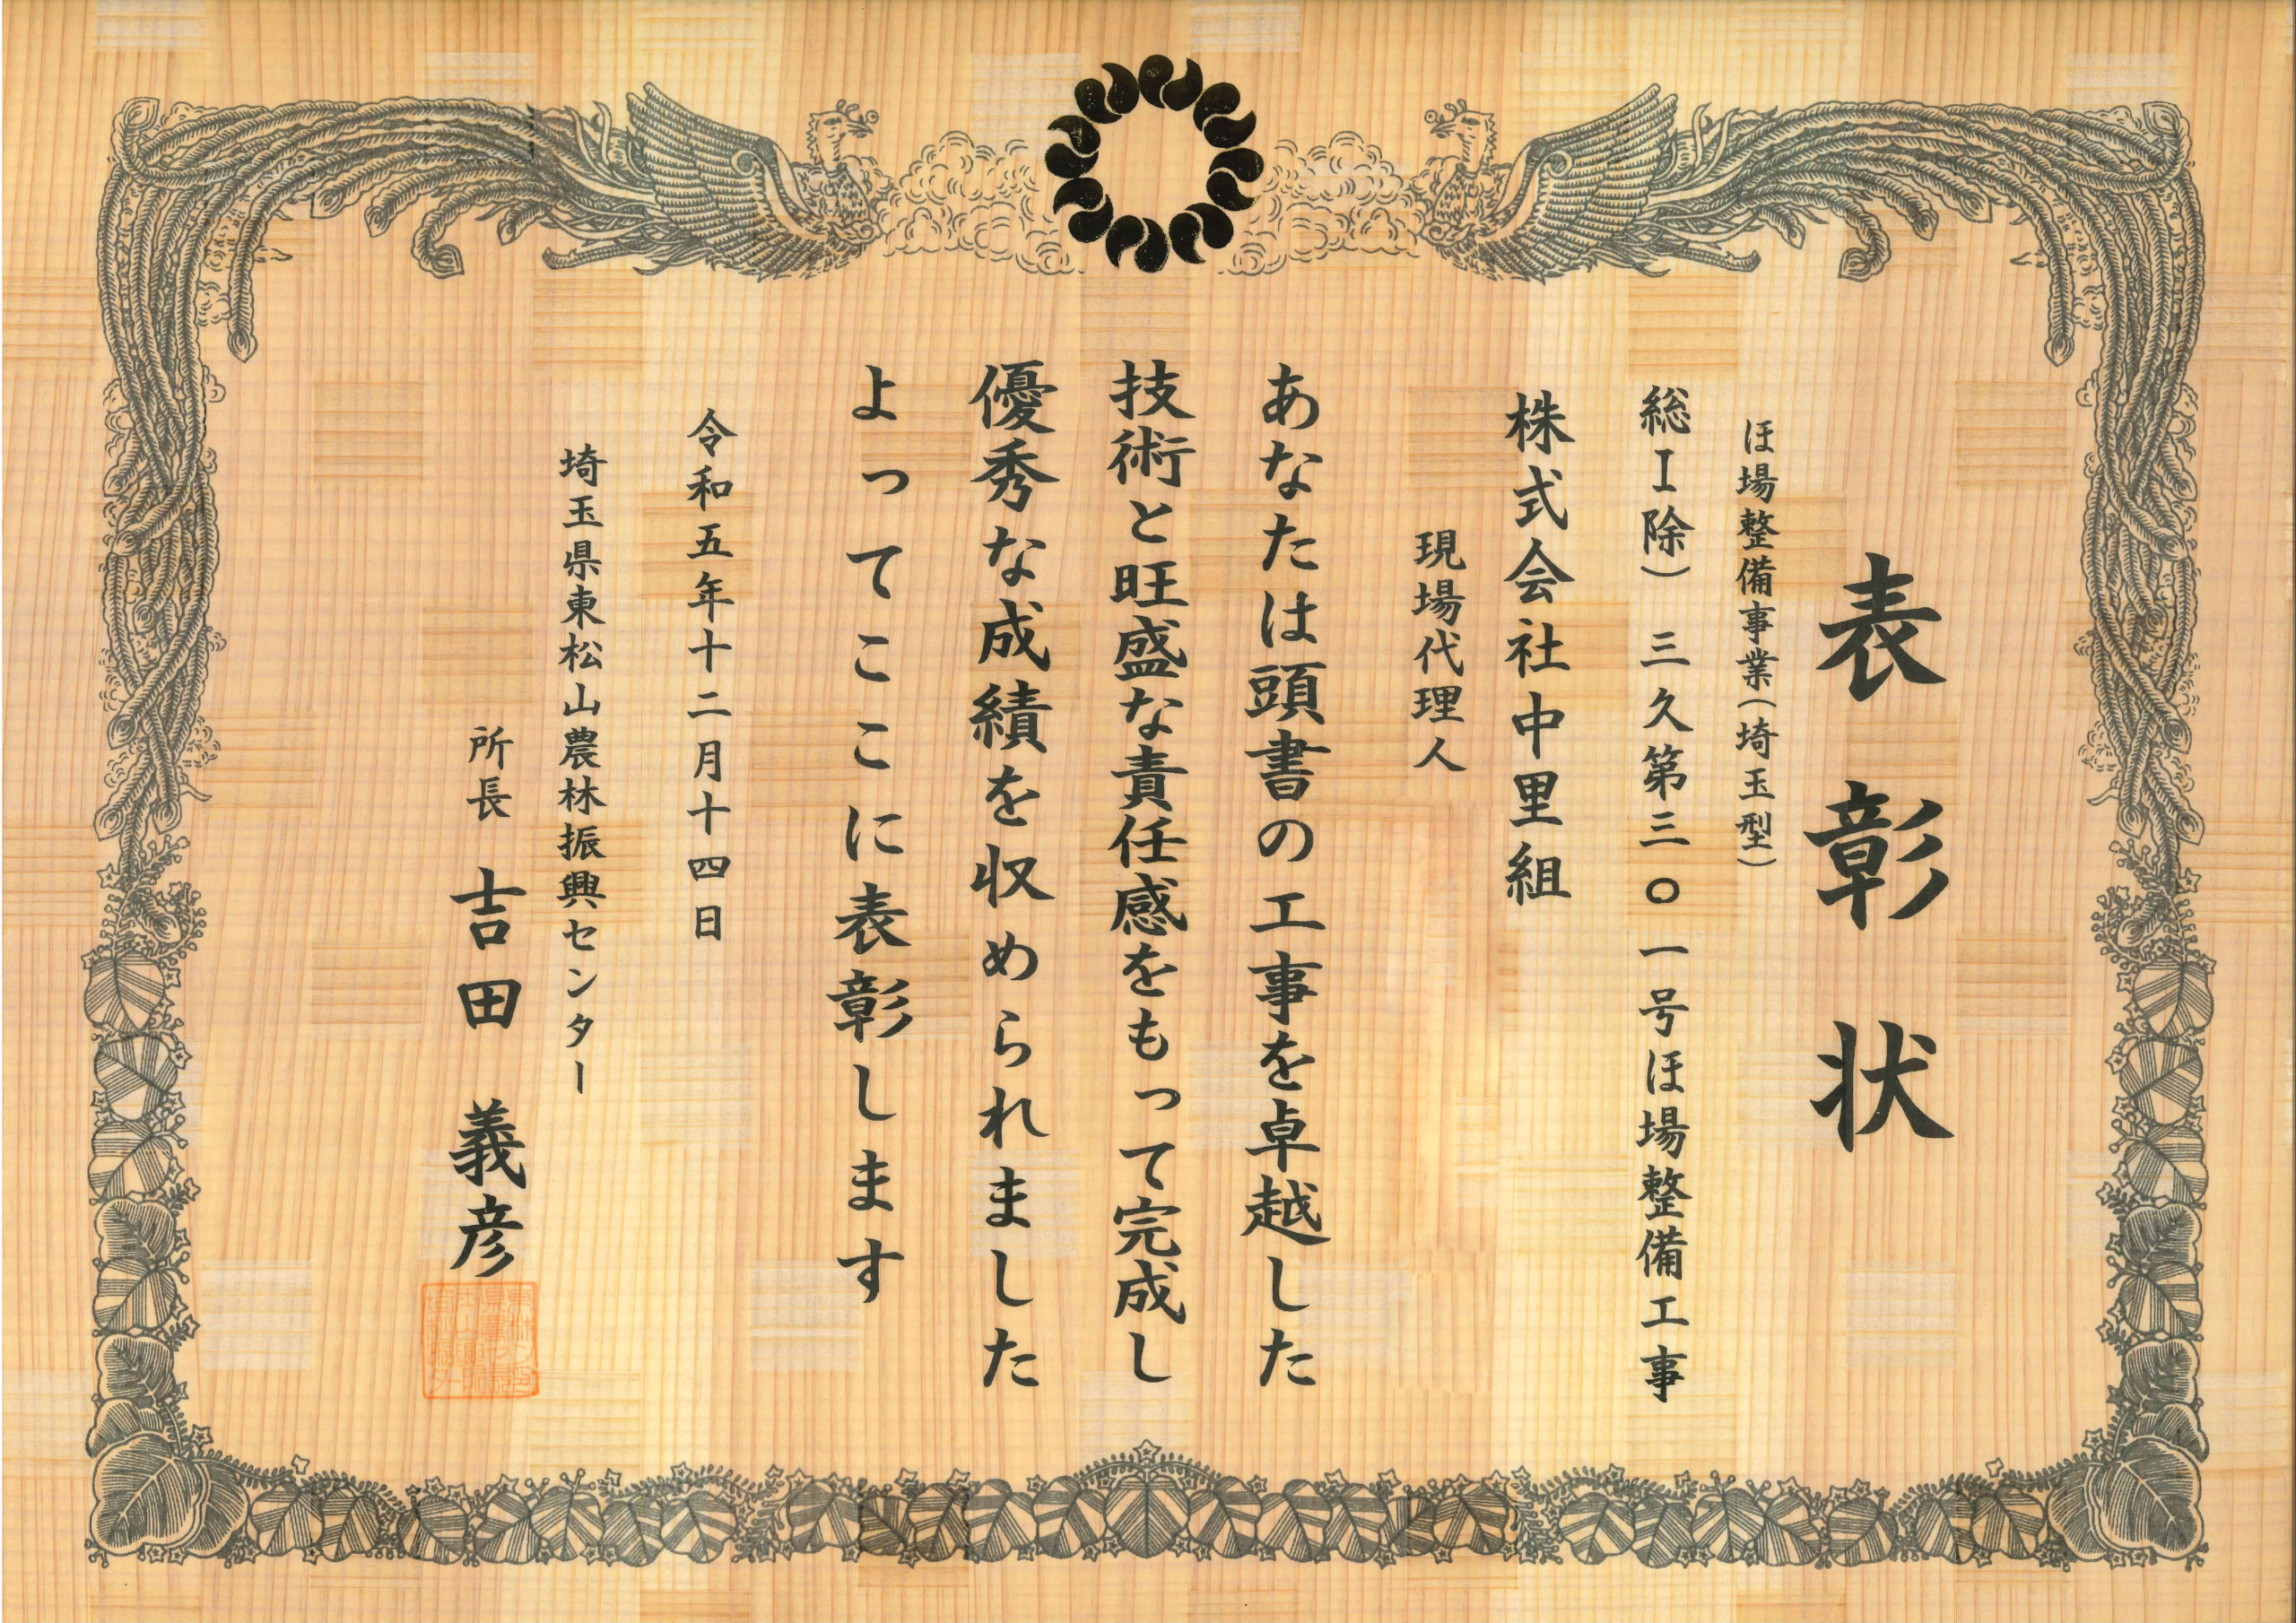 表彰状
ほ場整備事業(埼玉型)
総I除) 三久第三〇一号ほ場整備工事
株式会社中里組
現場代理人
あなたは頭書の工事を卓越した
技術と旺盛な責任感をもって完成し
優秀な成績を収められました
よってここに表彰します
令和五年十二月十四日
埼玉県東松山農林振興センター
所長 吉田 義彦